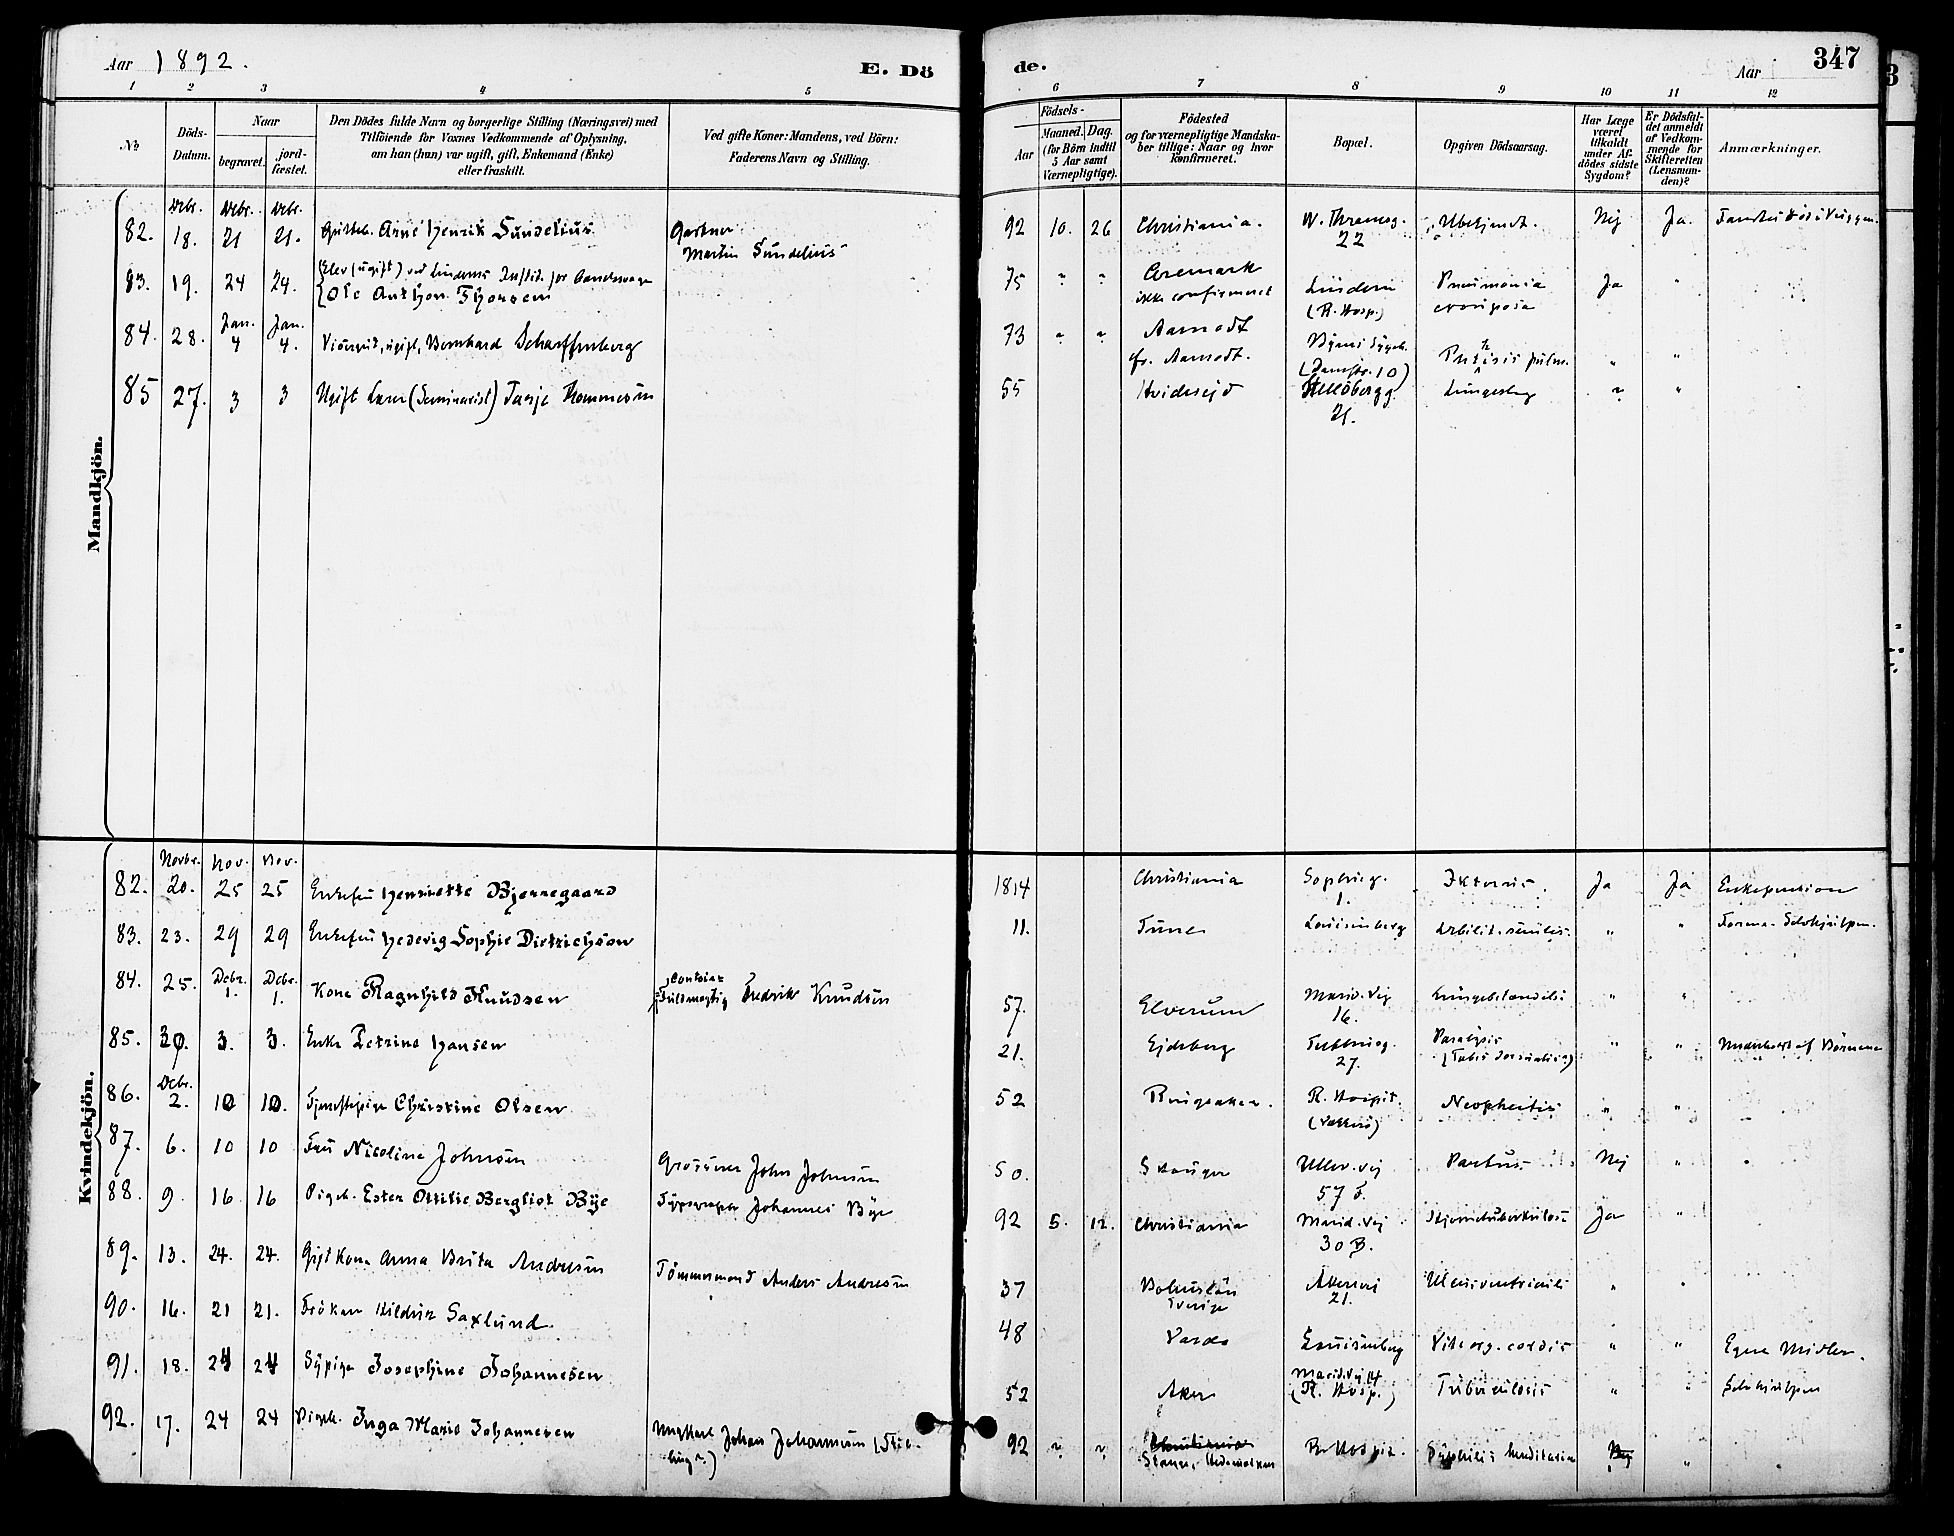 Aar 1892.
E. Dö
de.
Aar
347
1 2 3 4 5 6 7 8 9 10 11 12
No
Döds-Datum.
Naar
begravet.
jord-fæstet.
Den Dödes fulde Navn og borgerlige Stilling (Næringsvei) med
Tilföiende for Voxnes Vedkommende af Oplysning,
om han (hun) var ugift, gift, Enkemand (Enke)
eller fraskilt.
Ved gifte Koner: Mandens, ved Börn:
Faderens Navn og Stilling.
Födsels-
Aar
Maaned. Dag.
(for Börn indtil
5 Aar samt
Værnepligtige).
Födested
og for værnepligtige Mandska-
ber tillige: Naar og hvor
Konfirmeret.
Bopæl.
Opgiven Dödsaarsag.
Har Læge
været
tilkaldt
under Af-
dödes sidste
Sygdom?
Er Dödsfal-
det anmeldt
af Vedkom-
mende for
Skifteretten
(Lensman-
den)?
Anmærkninger.
Mandkjön.
Debr. Debr. Debr.
82. 18. 21 21. Arne Henrik Sundelius Gartner Martin Sundelius 92 10. 26 Christiania. W. Thranesg. 22 Ubekjendt. Nej Ja
83. 19. 24 24. Elev (ugift) ved Linderns Instit. for
Ole Anthon Thorsen 75 " " Aremark ikke confirmeret Lindern (R. Hosp.) Pneumonia crouposa Ja "
84. 28. Jan. 4 Jan. 4. ugift, Bernhard Scharffenberg 73 " " Aamodt fr. Aamodt. Byens Sygeh. (Damstr. 10) Phtisis pulm. " "
85 27. 3 3 Ugift Lærer (Seminarist) Tarje 55 Hvidesejd 21. " "
Kvindekjön.
Novbr. Nov. Nov.
82. 20. 25 25 Enkefru Henriette Bjerregaard 1814 Christiania Sophieg. 1. Ikterus. Ja Ja Enkepension
83. 23. 29 29 Enkefru Hedevig Sophie Dietrichson 11. Tune Louisenberg senilis. " "
84. 25. Debr. 1. Debr. 1. Kone Ragnhild Knudsen Contoir Fuldmægtig Fredrik Knudsen 57. Elverum Marid. Vej 16. Lungebetændelse " "
85. 30. 3. 3. Enke Petrine Hansen 21. Ejdsberg 27. Paralysis (Tabes dorsualis) " " Underhold af Börnene
86. Debr. 2. 10 10. Tjenestepige Christine Olsen 52 Ringsaker. R. Hospit. " "
87. 6. 10 10 Fru Nicoline Johnsen Grosserer John Johnsen 50. Skauger Ullev. vej 57 Partus. Nej "
88. 9. 16 16 Pigeb. Ester Ottilie Bergliot Bye Typograph Johannes Bye 92 5. 12. Christiania Marid. Vej 30 B. Hjernetuberkulose Ja "
89. 13. 24. 24. Gift Kone Anna Brita Andresen Tömmermand Anders Andresen 37 Bohuslän Sverige Akersvej 21. Ulcus ventriculi " "
90. 16. 21 21. Fröken Hildur Saxlund. 48 Vardö Louisenberg Vit. org. cordis " " Egne Midler.
91. 18. 24 24 Sypige Josephine Johannesen 52 Aker Marid. Vej 14 (R. Hosp.) Tuberculosis " " Selvhjulpen
92. 17. 24 24 Pigeb. Inga Marie Johannesen Ungkarl Johan Johannesen 92 " " Christiania Stange, Hedemarken R. Hospit. Syphilis hereditaria Nej "